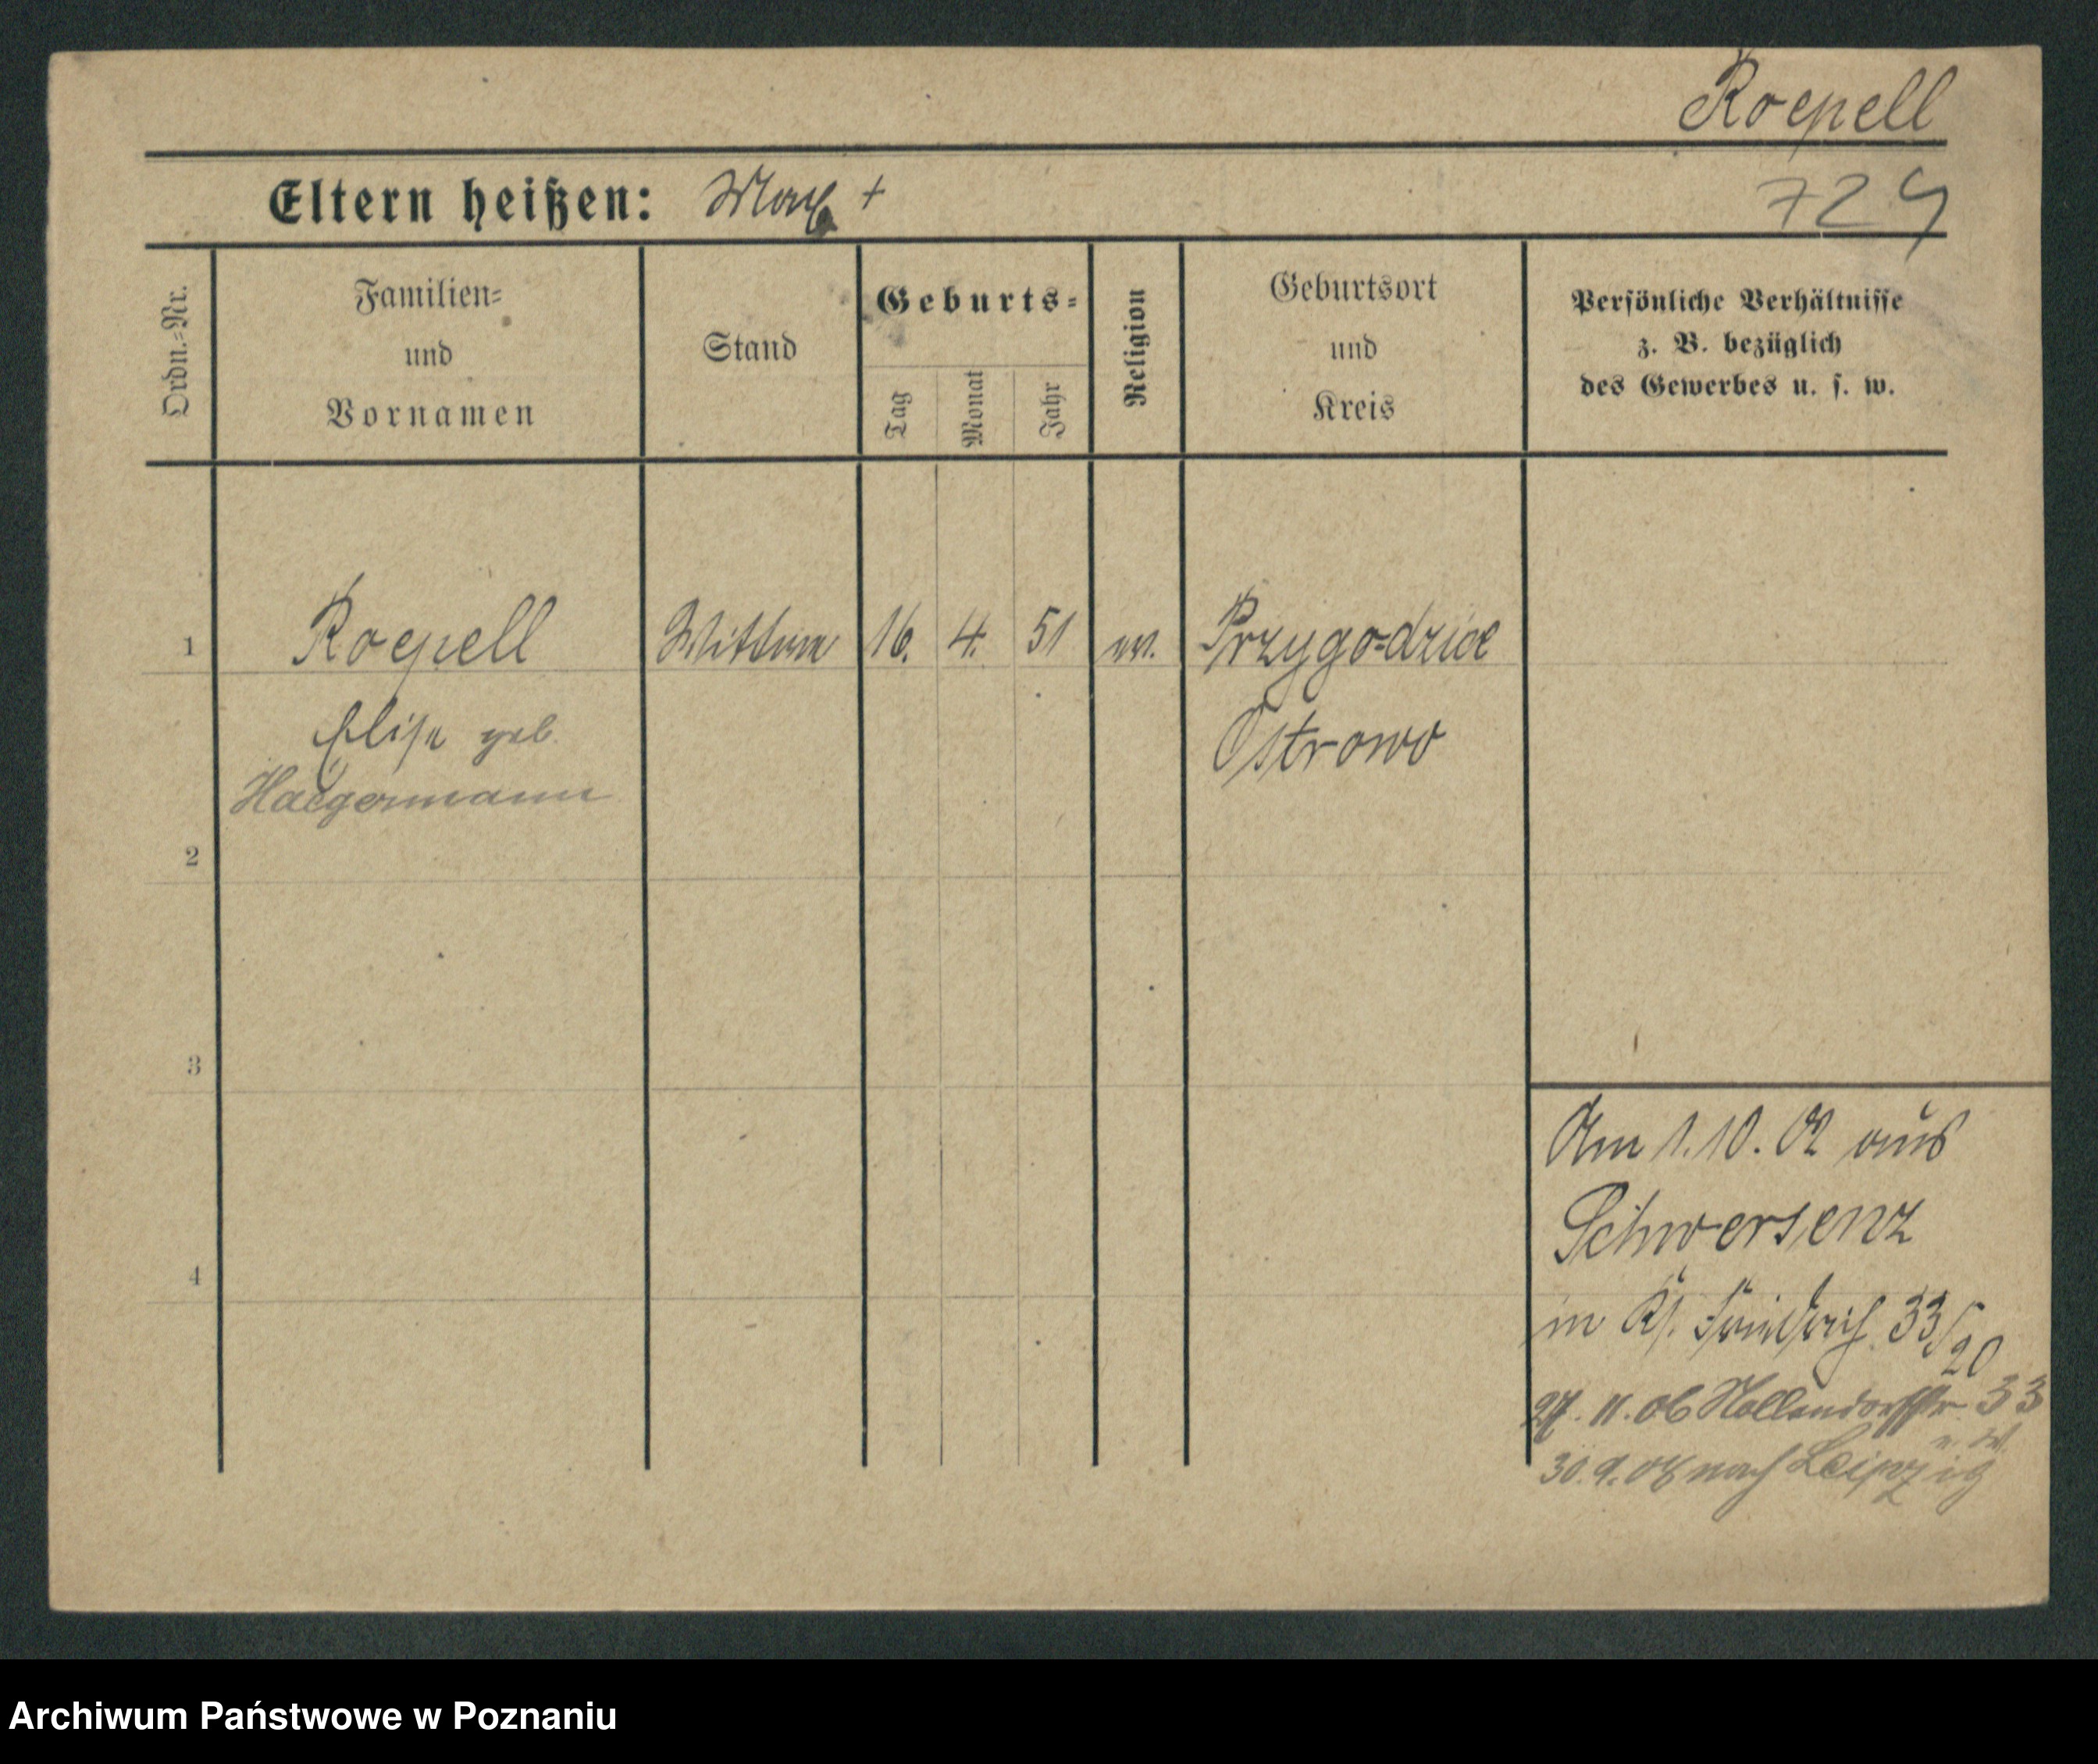 Roepell
Eltern heißen: Max +
724
Ordn.-Nr.
Familien-
und
Vornamen
Stand
Geburts-
Tag
Monat
Jahr
Religion
Geburtsort
und
Kreis
Persönliche Verhältnisse
z. B. bezüglich
des Gewerbes u. s. w.
1 Roepell Wittwe 16. 4. 51 ev. Przygodzice
Elise geb. Ostrowo
Haegermann
2
3
4
Am 1.10.02 aus
Schwersenz
in Ks. Friedrich 33/20
27.11.06 Nollendorffstr 33
30.9.08 nach Leipzig
Archiwum Państwowe w Poznaniu